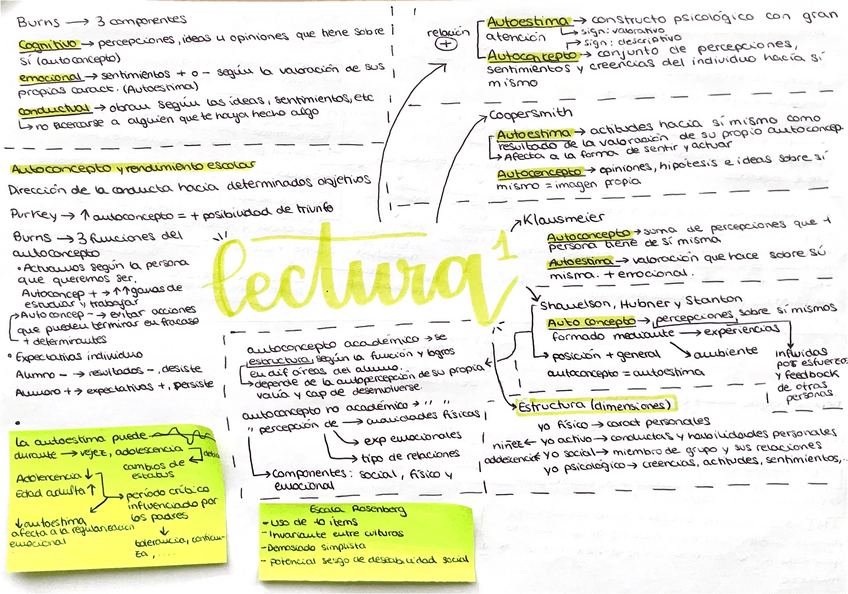 Burns → 3 componentes
Cognitivo → percepciones, ideas u opiniones que tiene sobre
sí (autoconcepto)
emocional → sentimientos + o - según la valoración de sus
propias caract. (Autoestima)
conductual → obrar según las ideas, sentimientos, etc
↳ no acercarse a alguien que te haya hecho algo
relación
+
Autoestima → constructo psicológico con gran
atención
↳ sign: valorativo
↱ sign: descriptivo
Autoconcepto → conjunto de percepciones,
sentimientos y creencias del individuo hacia sí
mismo
Coopersmith
Autoestima → actitudes hacia sí mismo como
resultado de la valoración de su propio autoconcep.
↳ Afecta a la forma de sentir y actuar
Autoconcepto → opiniones, hipótesis e ideas sobre sí
mismo = imagen propia
Autoconcepto y rendimiento escolar
Dirección de la conducta hacia determinados objetivos
Purkey → ↑ autoconcepto = + posibilidad de triunfo
Burns → 3 funciones del
autoconcepto
• Actuamos según la persona
que queremos ser.
Autoconcep + → ↑↑ ganas de
estudiar y trabajar
↳ Autoconcep - → evitar acciones
que pueden terminar en fracaso
+ determinantes
• Expectativas individuo
Alumno - → resultados -, desiste
Alumno + → expectativas +, persiste
•
lectura 1
Klausmeier
Autoconcepto → suma de percepciones que 1
persona tiene de sí misma
Autoestima → valoración que hace sobre sú
misma. + emocional.
Shavelson, Hubner y Stanton
Auto concepto → percepciones, sobre sí mismos
formado mediante → experiencias
↳ posición + general
ambiente
autoconcepto = autoestima
influidas
por esfuerzos
y feedback
de otras
personas
Estructura (dimensiones)
yo físico → caract personales
niñez ← yo activo → conductas y habilidades personales
adolescencia ← yo social → miembro de grupo y sus relaciones
yo psicológico → creencias, actitudes, sentimientos,..
autoconcepto académico → se
estructura, según la función y logros
en dif áreas del alumno.
↳ depende de la autopercepción de su propia
valía y cap de desenvolverse
autoconcepto no académico → " "
" percepción de → cualidades físicas
exp emocionales
tipo de relaciones
↳ componentes: social, físico y
emocional
la autoestima puede
durante → vejez, adolescencia
cambios de
estatus
Adolescencia ↓
Edad adulta ↑
período crítico
influenciado por
los padres
↓ autoestima
afecta a la regulación
emocional
tolerancia,
Escala Rosenberg
• Uso de 10 items
- Invariante entre culturas
- Demasiado simplista
- potencial sesgo de deseabilidad social